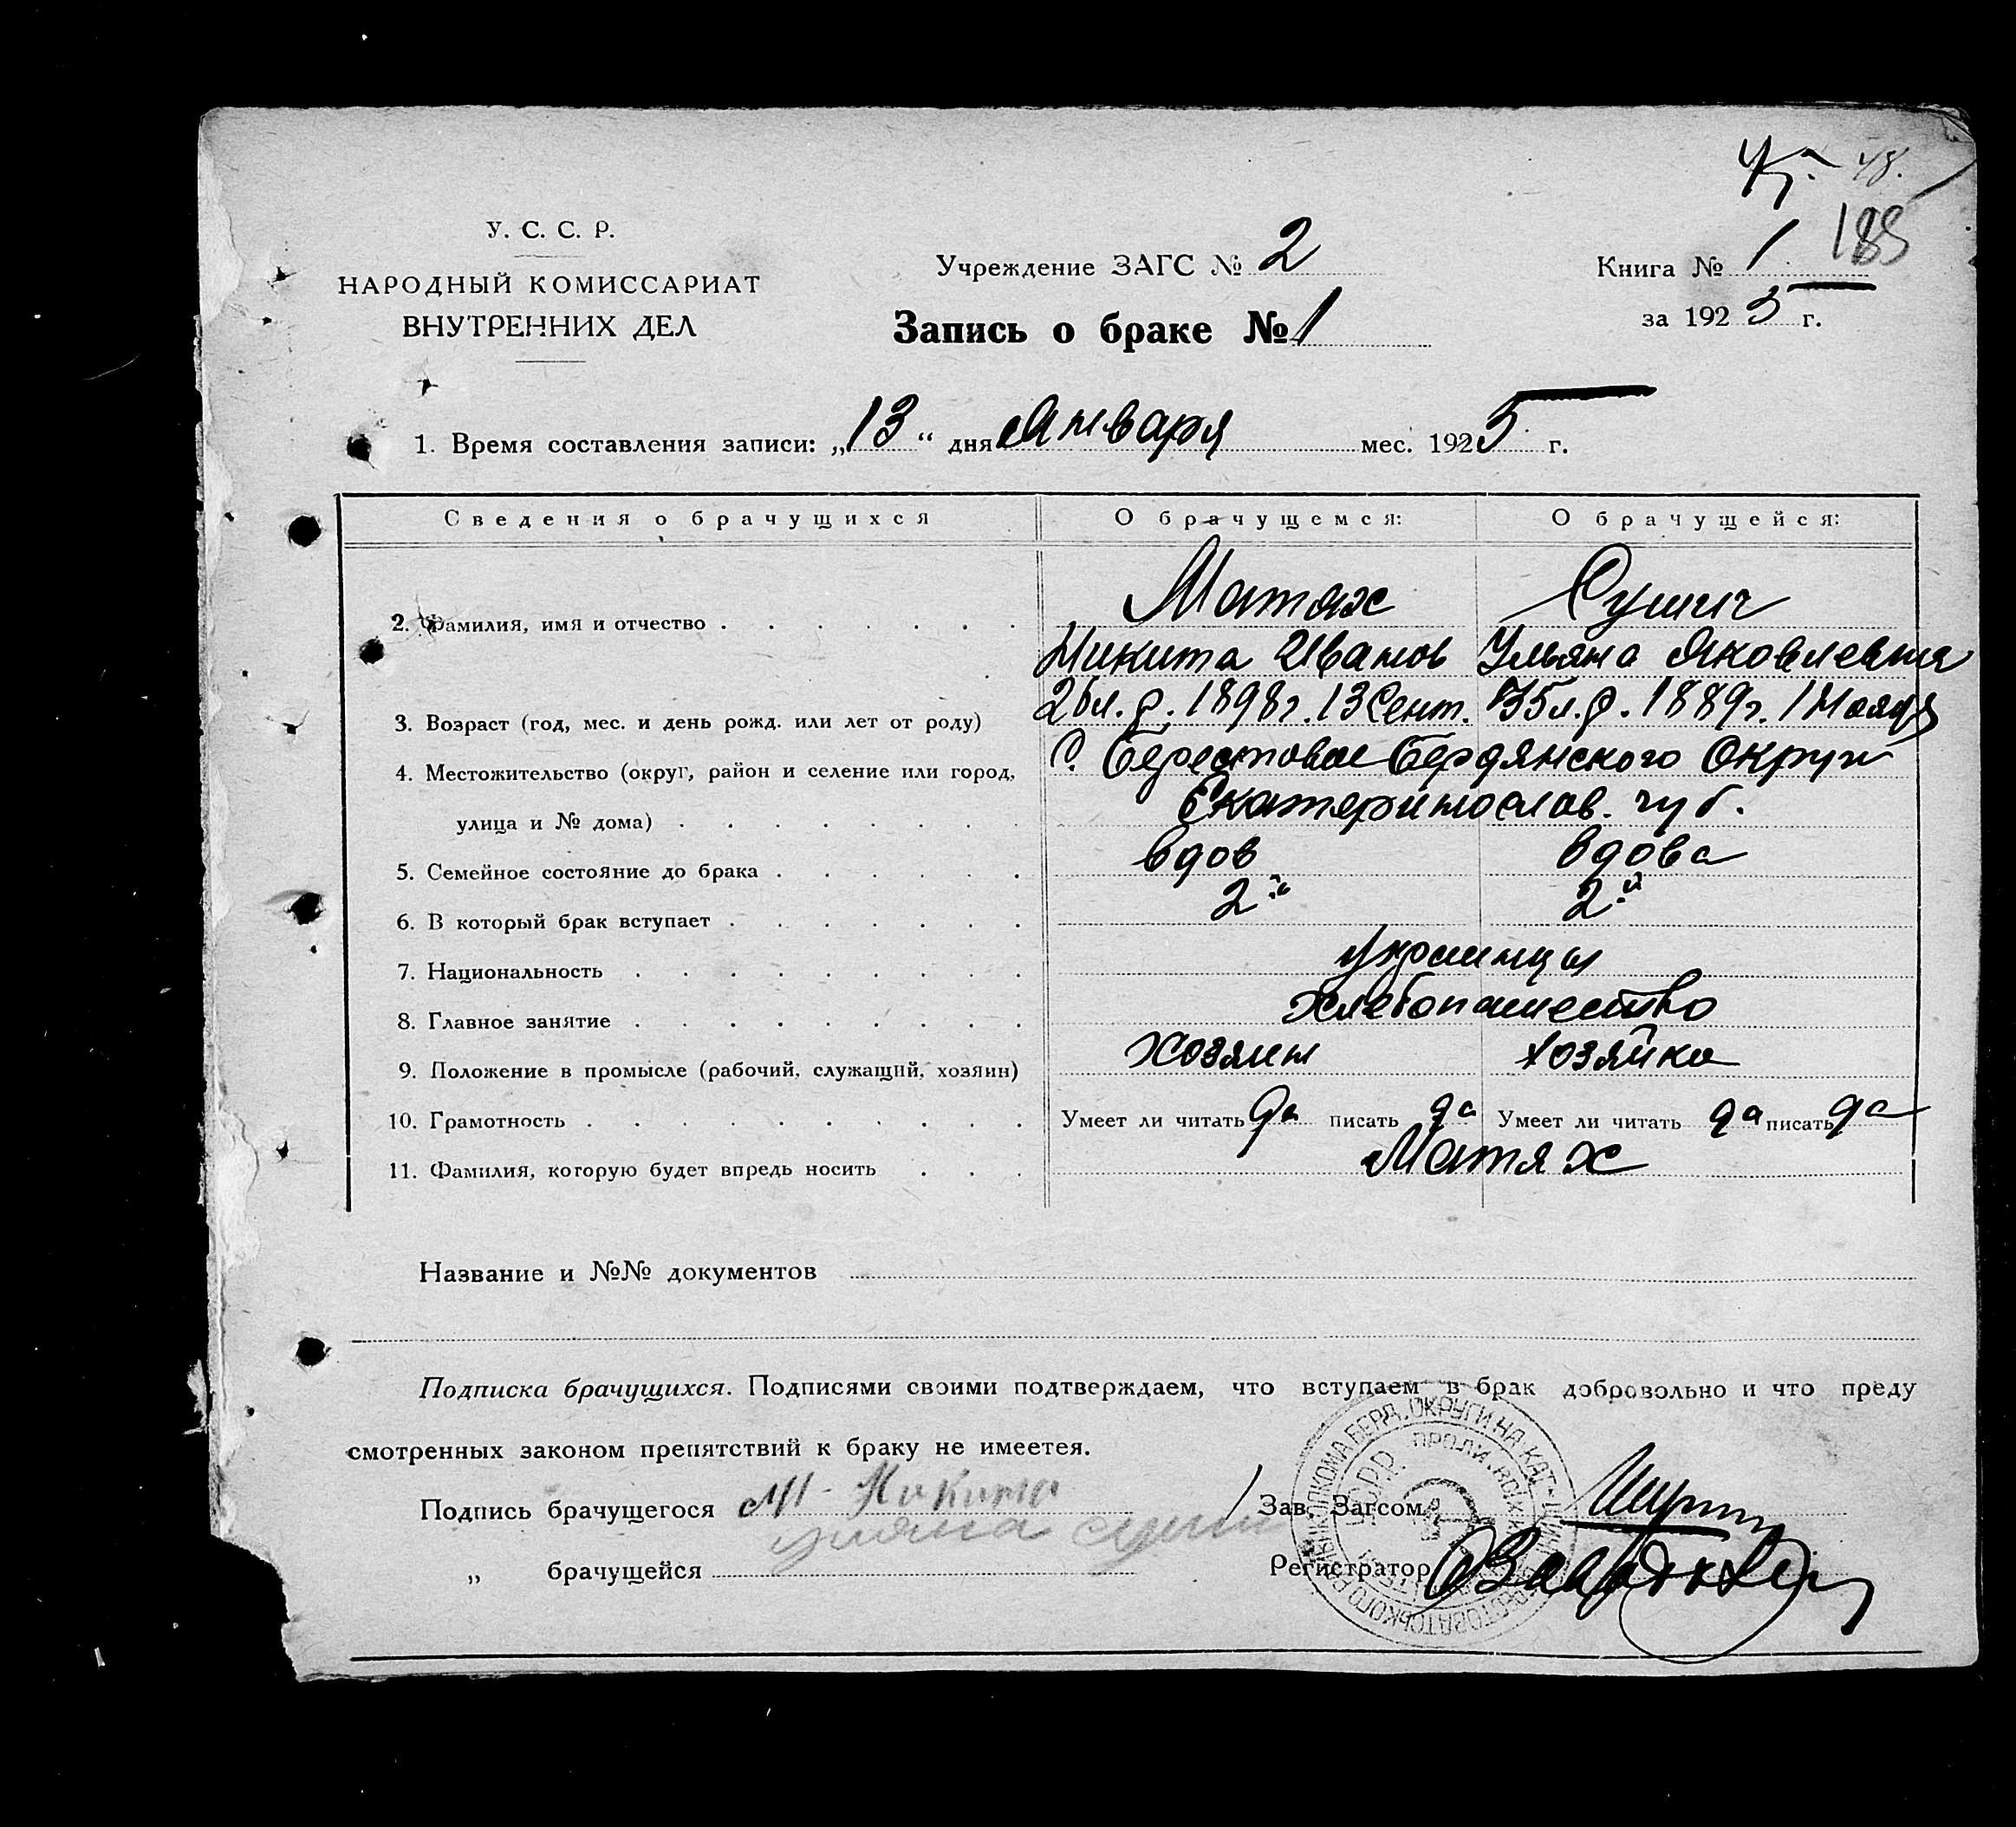 45. 48.
185
У. С. С. Р.
НАРОДНЫЙ КОМИССАРИАТ
ВНУТРЕННИХ ДЕЛ
Учреждение ЗАГС № 2
Запись о браке № 1
Книга № 1
за 1925 г.
1. Время составления записи: „13“ дня Января мес. 1925 г.
Сведения о брачущихся О брачущемся: О брачущейся:
2. Фамилия, имя и отчество Матях Сушич
Никита Иванов Ульяна Яковлевна
3. Возраст (год, мес. и день рожд. или лет от роду) 26 л. р. 1898 г. 13 Сент. 35 л. р. 1889 г. 1 Ноября
4. Местожительство (округ, район и селение или город, С. Берестовое Бердянского Округи
улица и № дома) Екатеринослав. губ.
5. Семейное состояние до брака вдов вдова
6. В который брак вступает 2-й 2-й
7. Национальность украинцы
8. Главное занятие хлебопашество
9. Положение в промысле (рабочий, служащий, хозяин) хозяин хозяйка
10. Грамотность Умеет ли читать да писать да Умеет ли читать да писать да
11. Фамилия, которую будет впредь носить Матях
Название и №№ документов
Подписка брачущихся. Подписями своими подтверждаем, что вступаем в брак добровольно и что преду
смотренных законом препятствий к браку не имеетея.
Подпись брачущегося М Никита
Зав. Загсом
„ брачущейся уляна сушич
Регистратор
ВИКОНКОМА БЕРД. ОКРУГИ НА КАТ
У.С.Р.Р.
ПРОЛИ